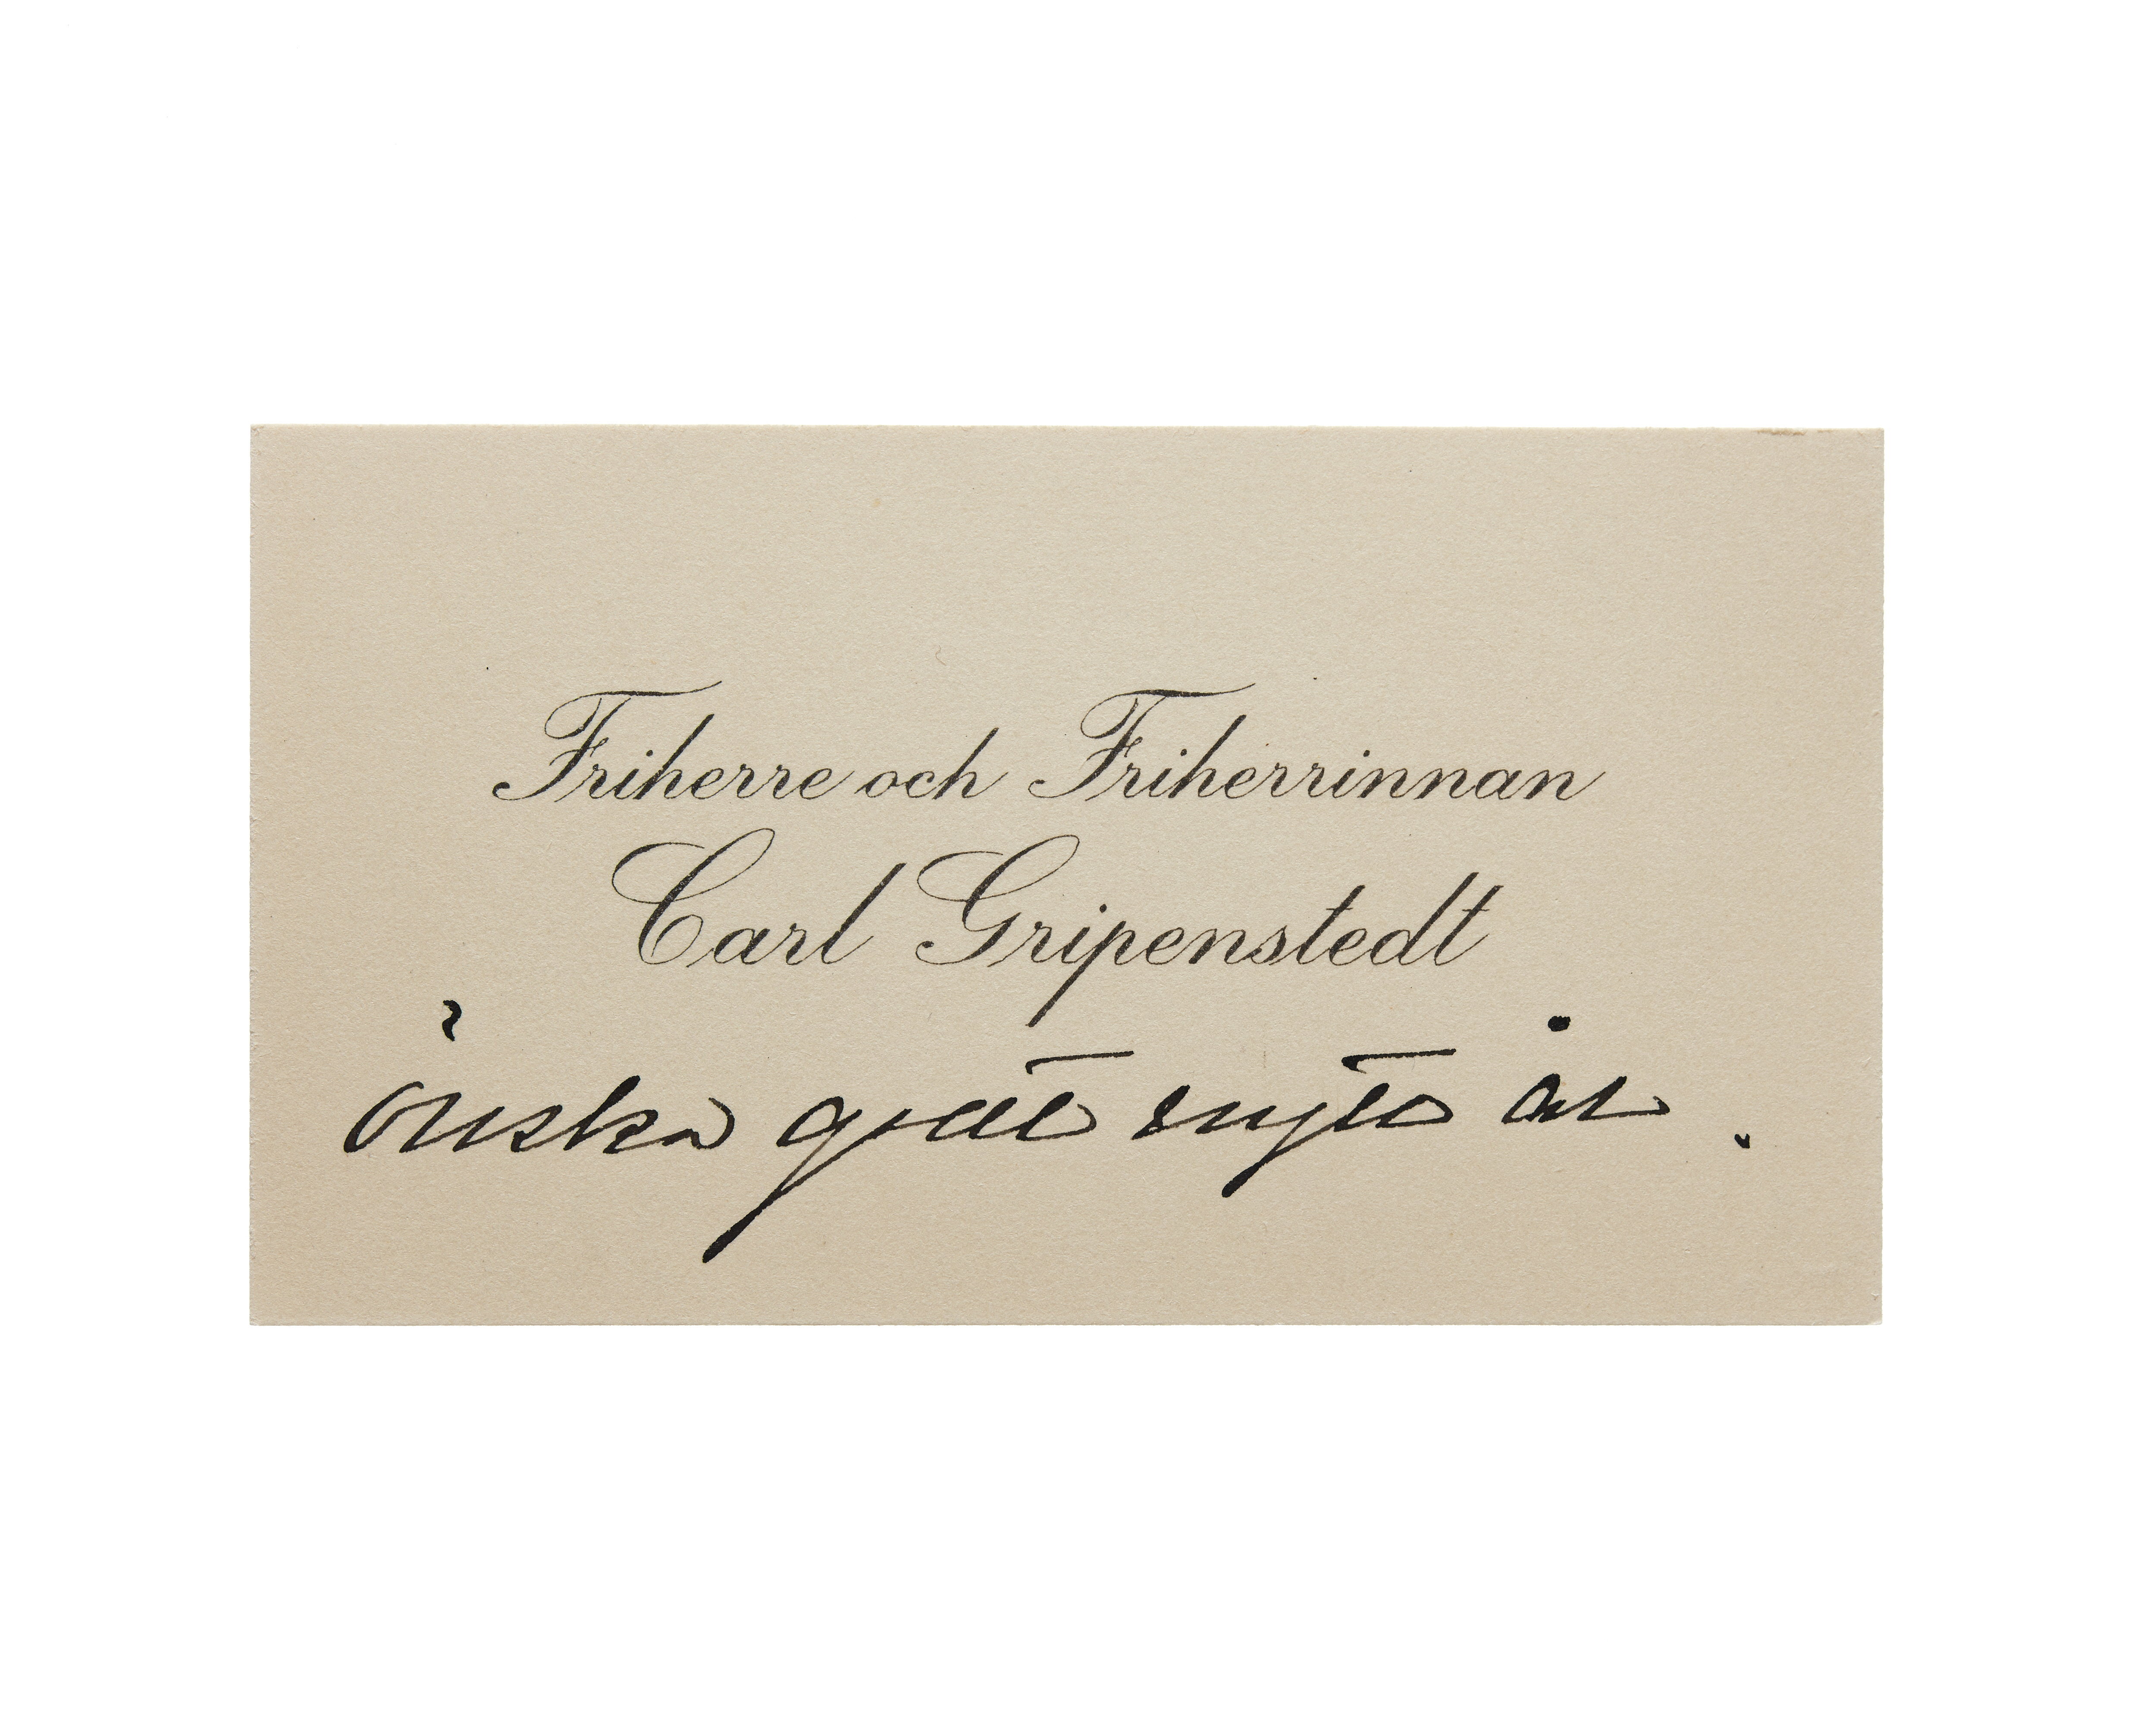 Friherre och Friherrinnan
Carl Gripenstedt
önska godt nytt år.